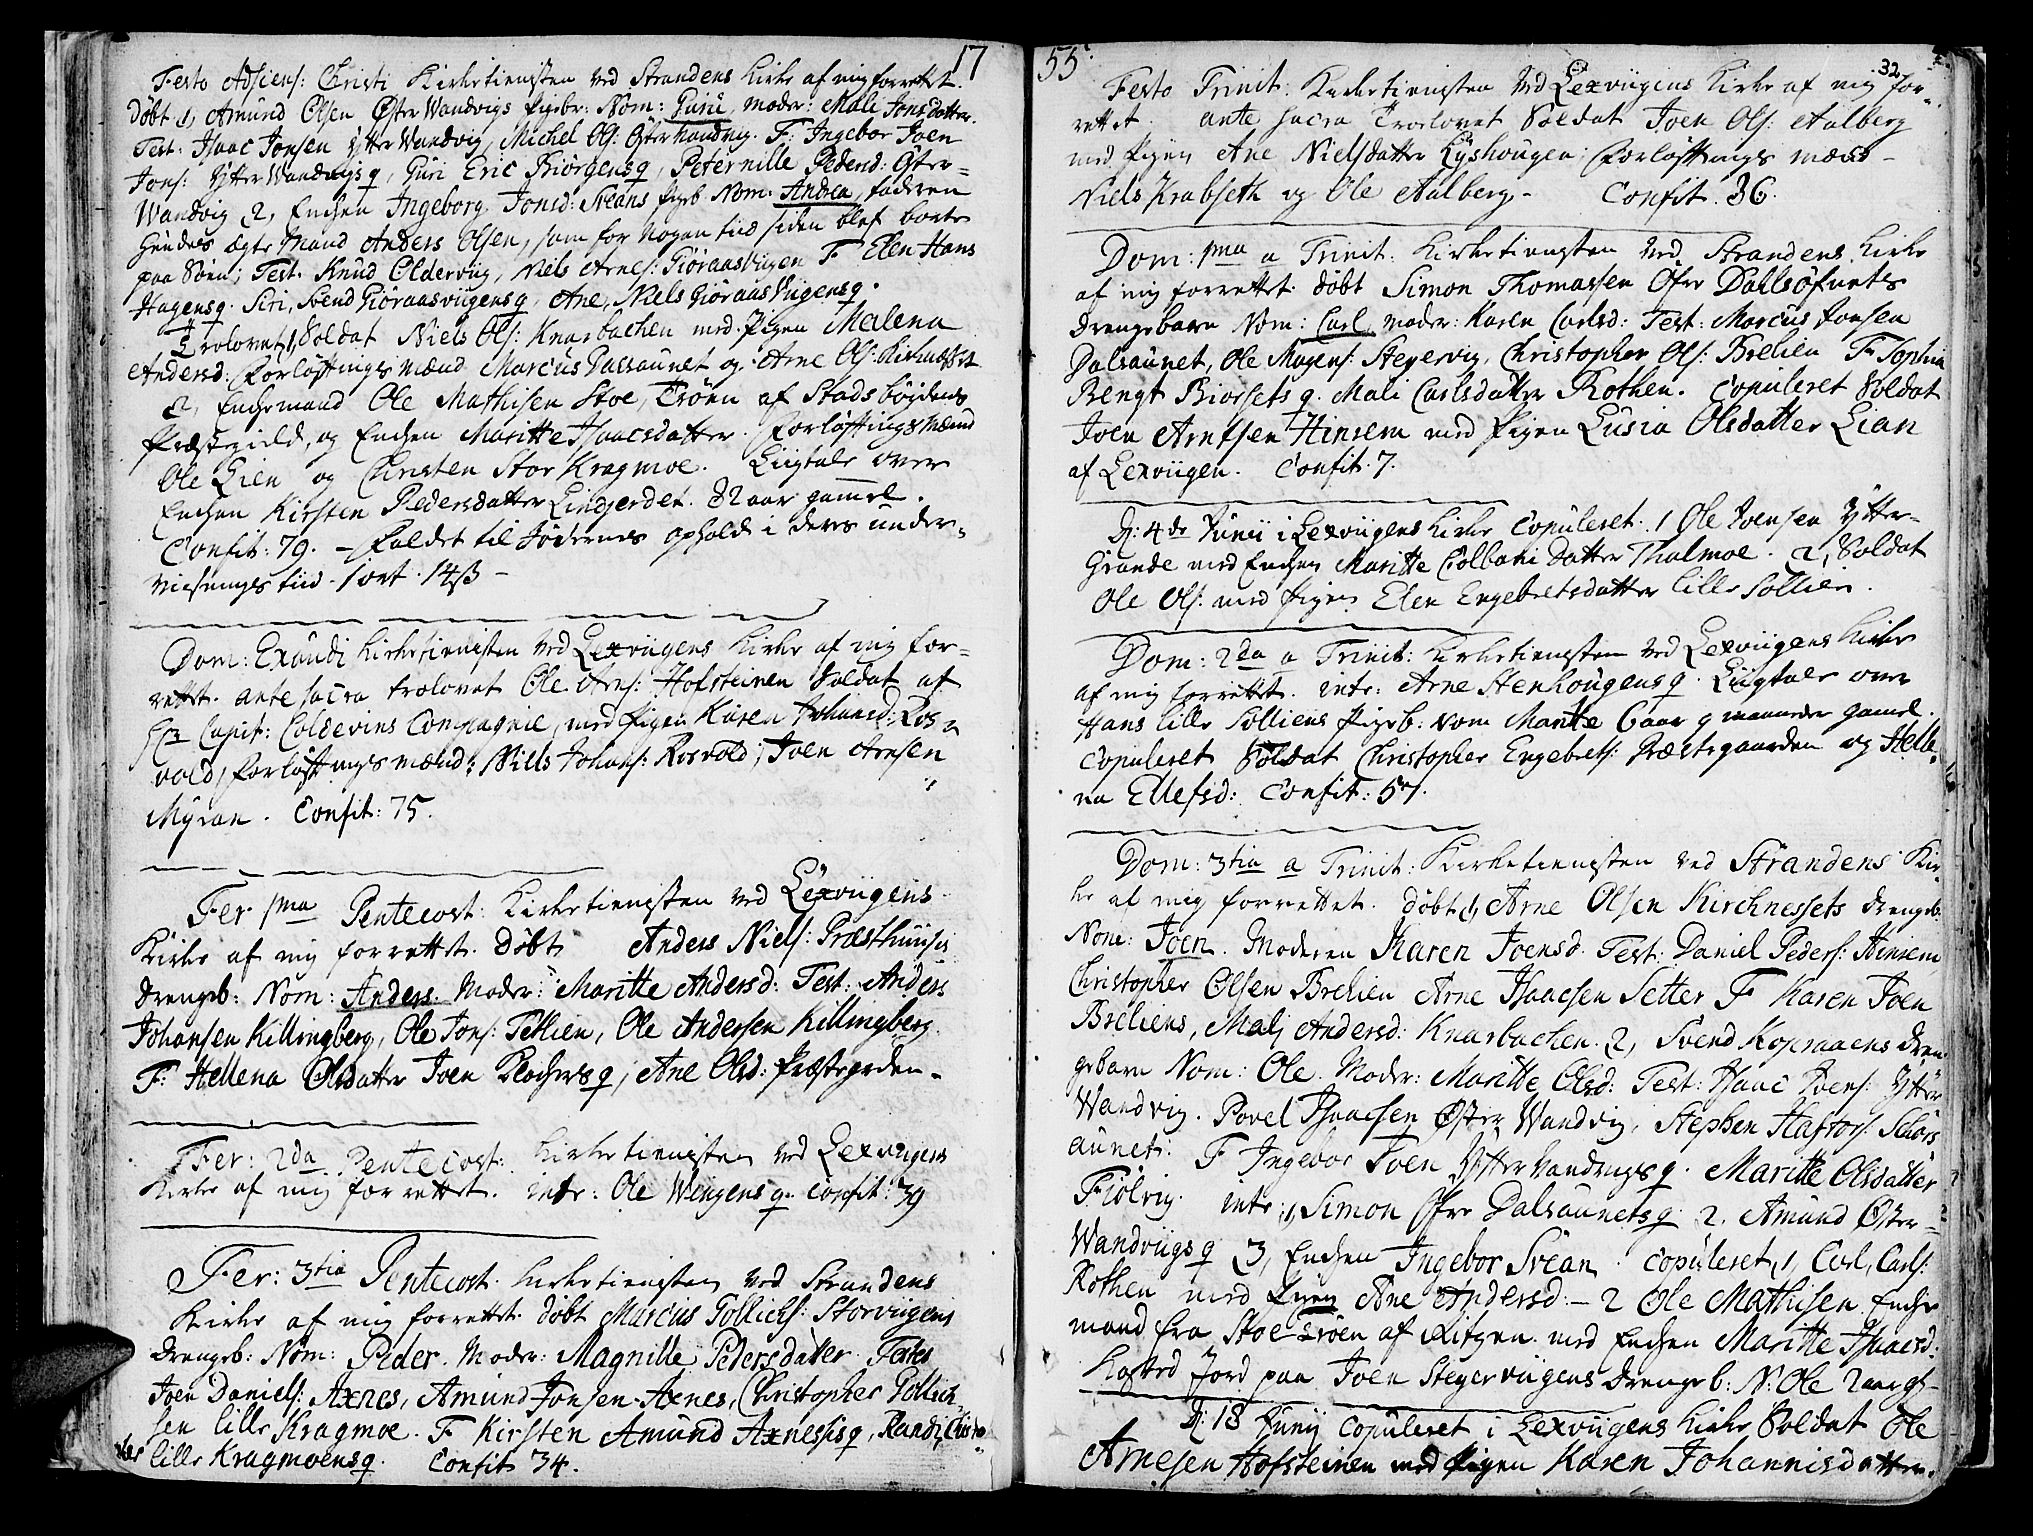 17
Festo Adscens: Christi Kirketienesten ved Strandens Kirke af mig forrettet.
Døbt 1, Amund Olsen Øster Wandvigs Pigebr: Nom: Guru, moder: Mali Jonsdatter.
Test: Isaac Jonsen Ytter Wandvig, Michel Ols: Østerwandvig. F: Ingebor Joen
Jons: Ytter Wandvigs q, Guri Eric Biörgens q, Peternille Pedersd: Øster-
Wandvig 2, Enchen Ingeborg Jonsd: Sveans Pigeb Nom: Andrea, faderen
hendes ægte Mand Anders Olsen, som for nogen tiid siden blef borte
paa Søen; Test. Knud Olderviig, Niels Arnes: Giöraasviigen F Elen Hans
Hagens q. Siri, Svend Giöraasviigens q, Ane, Niels Giöraasviigens q.
Trolovet 1, Soldat Niels Ols: Knarbachen med Pigen Malena
Andersd: Forløftnings mænd Marcus Vassaunet og Arne Ols: Kirknesset
2, Enchemand Ole Mathisen Stoe, Trøen af Stadsbøydens
Præstegield, og Enchen Maritte Isaacsdatter. Forløftnings Mænd
Ole Lien og Christen Stor Kragmoe. Liigtale over
Enchen Kirsten Pedersdatter Lindjerdet. 82 aar gamel.
Confit: 79. - Faldet til Jødernes ophold i deres under-
viisnings tiid - 1 ort 14 ß -
Dom: Exaudi Kirketienesten ved Lexviigens Kirke af mig for-
rettet. ante sacra trolovet Ole Arns: Hofsteinen Soldat af
Capit: Coldevins Compagnie, med Pigen Karen Johansd: Ros-
vold, forløftnings mænd: Niels Johans: Rosvold, Joen Arnsen
Myran. Confit: 75.
Fer 1ma Pentecost: Kirketienesten ved Lexviigens
Kirke af mig forrettet. Døbt Anders Niels: Præsthuuses
Drengeb: Nom: Anders. Moder: Maritte Andersd: Test: Anders
Johansen Killingberg, Ole Jons: Teklien, Ole Andersen Killingberg.
F: Hellena Olsdatter Joen Rochers q, Ane Olsd: Præstegrden -
Fer: 2da Pentecost: Kirketienesten ved Lexviigens
Kirke af mig forrettet. intr: Ole Wengens q. Confit: 39
Fer: 3tia Pentecost. Kirketienesten ved Strandens
Kirke af mig forrettet. døbt Marcus Tollichs: Storviigens
Drengeb: Nom: Peder. Moder: Magnille Pedersdatter. Testes
Joen Daniels: Axnes, Amund Jonsen Axnes, Christopher Tollich-
sen lille Kragmoe. F Kirsten Amund Axnessis q, Randi, Christo-
phers lille Kragmoens q. Confit 34.
55.
32
Festo Trinit. Kirketienesten ved Lexviigens Kirke af mig for-
rettet. ante sacra Trolovet Soldat Joen Ols: Aalberg
med Pigen Ane Nielsdatter Lyshougen; Forløftnings mænd -
Niels Krabseth og Ole Aalberg - Confit. 36.
Dom: 1ma a Trinit: Kirketienesten ved Strandens Kirke
af mig forrettet. døbt Simon Thomassen Øfre Dallsøfnets
drengebarn Nom: Carl, moder: Karen Carlsd: Test: Marcus Jonsen
Dalsaunet, Ole Mogens: Stegervig, Christopher Ols: Brelien F Sophia
Bengt Biorsets q. Mali Carlsdatter Rothen. Copuleret Soldat
Joen Arntsen Hinsem med Pigen Lusia Olsdatter Lian
af Lexviigen. Confit. 7.
D: 4de Junii i Lexviigens Kirke Copuleret. 1 Ole Joensen Ytter-
Grande med Enchen Maritte Colbani Datter Thalmoe. 2, Soldat
Ole Ols: med Pigen Elen Engebretsdatter lille Sollien.
Dom: 2da a Trinit: Kirketienesten ved Lexviigens Kirke
af mig forrettet. intr: Arne Stenhougens q. Liigtale over
Hans lille Solliens Pigeb: Nom Maritte 6 aar 9 maaneder gamel.
Copuleret Soldat Christopher Engebrets: Præstegaarden og Helle-
na Ellefsd: Confit: 57.
Dom: 3tia a Trinit: Kirketienesten ved Strandens Kir-
ke af mig forrettet. døbt 1, Arne Olsen Kirchnessets drengeb:
Nom: Joen. Moderen Karen Joensd. Test: Daniel Peders: Hinsem,
Christopher Olsen Brelien Arne Isaacsen Setter F Karen Joen
Breliens, Mali Andersd: Knarbachen. 2, Svend Kopraaens dren-
gebarn Nom: Ole. Moder: Maritte Olsd: Test: Isaac Joens: Ytter
Wandvig. Povel Isaacsen Øster Wandvig, Stephen Haftors: Schörs
aunet: F Ingebor Joen Ytter Vandvigs q. Maritte Olsdatter
Fiölvig. intr: 1, Simon Øfre Dalsaunets q 2. Amund Øster-
Wandviigs q 3, Enchen Ingebor Svean. Copuleret 1, Carl Carls:
Rothen med Pigen Ane Andersd: - 2 Ole Mathisen Enche
mand fra Stoe-trøen af Ritzen med Enchen Maritte Isaacsd:
Kasted Jord paa Joen Stegerviigens drengeb: N: Ole 2 aar gl -
D: 18 Junij Copuleret i Lexviigens Kirke Soldat Ole
Arnesen Hofsteinen med Pigen Karen Johannisdatter.